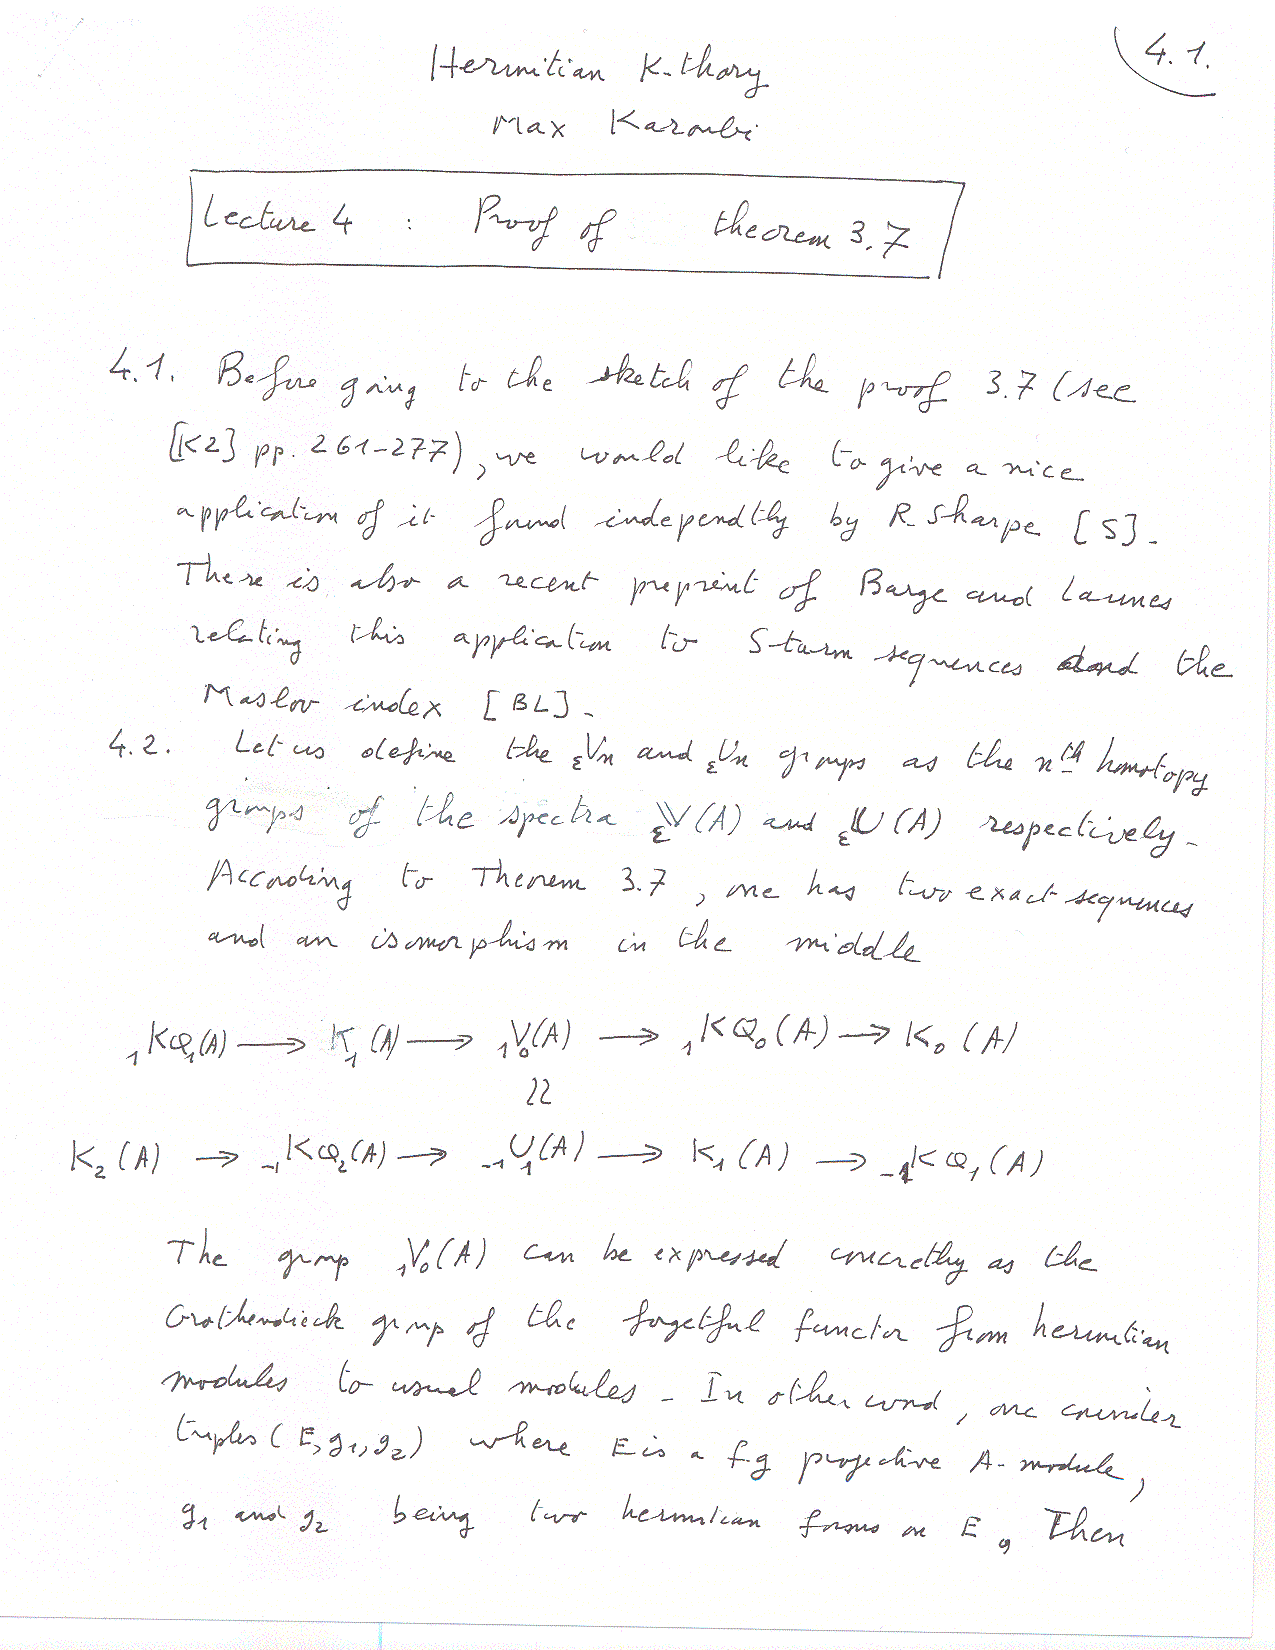 4.1.
Hermitian K-thory
Max Karoubi
Lecture 4 : Proof of theorem 3.7
4.1. Before going to the sketch of the proof 3.7 (see
[K2] pp. 261-277), we would like to give a nice
application of it found independtly by R. Sharpe [S].
There is also a recent preprint of Barge and Lannes
relating this application to Sturm sequences and the
Maslov index [BL].
4.2. Let us define the ₑVₙ and ₑUₙ groups as the nᵗʰ homotopy
groups of the spectra ₑ𝕍(A) and ₑ𝕌(A) respectively.
According to Theorem 3.7, one has two exact sequences
and an isomorphism in the middle
₁KQ₁(A) → K₁(A) → ₁V₀(A) → ₁KQ₀(A) → K₀(A)
≀≀
K₂(A) → ₋₁KQ₂(A) → ₋₁U₁(A) → K₁(A) → ₋₁KQ₁(A)
The group ₁V₀(A) can be expressed concretly as the
Grothendieck group of the forgetful functor from hermitian
modules to usual modules. In other word, one consider
triples (E, g₁, g₂) where E is a f.g projective A-module,
g₁ and g₂ being two hermitian forms on E, Then